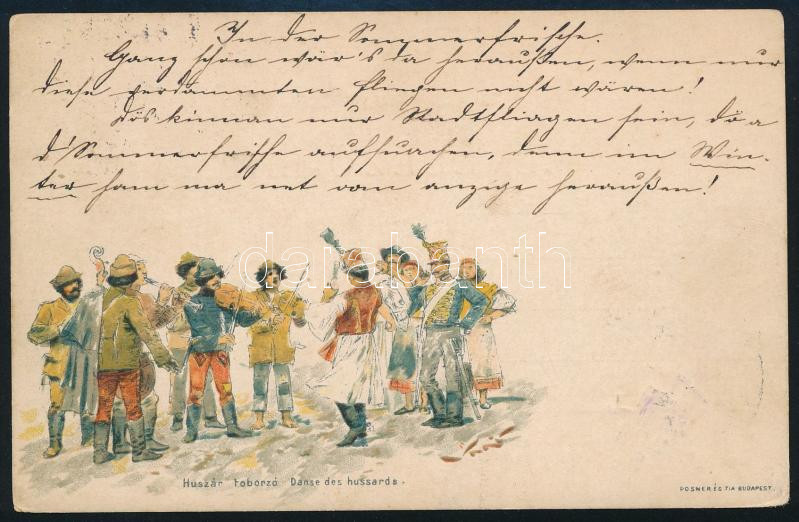 In der Sommerfrische.
Ganz schön wär's da heraußen, wenn nur
diese verdammten Fliegen nicht wären!
Dös kinnan nur Stadtfliagen sein, dö a
d'Sommerfrische aufsuachen, denn im Win-
ter ham ma net oam anzige heraußen!
darabanth
.com
Huszár toborzó Danse des hussards.
POSNER ÉS TIA BUDAPEST.